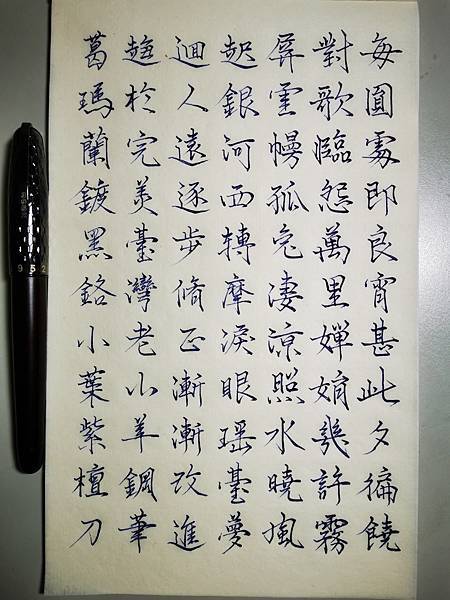 每圓處即良宵甚此夕徧饒
對歌臨怨萬里嬋娟幾許霧
屏雲幔孤兔淒涼照水曉風
起銀河西轉摩淚眼瑤臺夢
迴人遠逐步脩正漸漸改進
趨於完美臺灣老小羊鋼筆
葛瑪蘭鍍黑鉻小葉紫檀刀
952